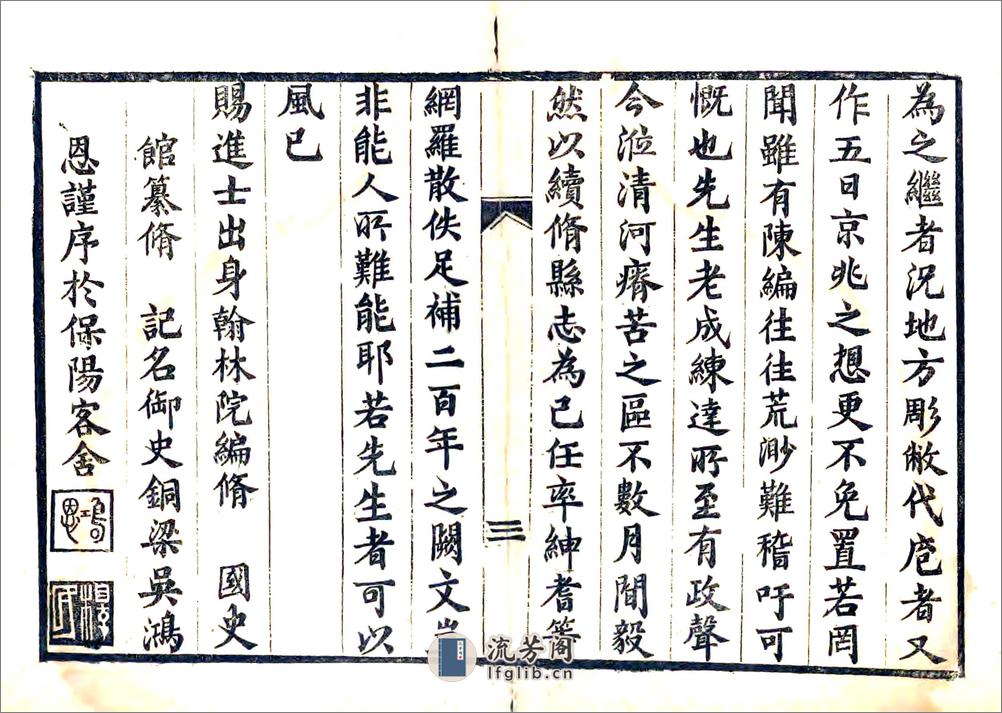 為之繼者況地方彫敝代庖者又
作五日京兆之想更不免置若罔
聞雖有陳編往往荒渺難稽吁可
慨也先生老成練達所至有政聲
今涖清河瘠苦之區不數月間毅
然以續脩縣志為己任率紳耆等
三
網羅散佚足補二百年之闕文豈
非能人所難能耶若先生者可以
風已
賜進士出身翰林院編脩 國史
館纂脩 記名御史銅梁吳鴻
恩謹序於保陽客舍
鴻恩
流芳閣
lfglib.cn